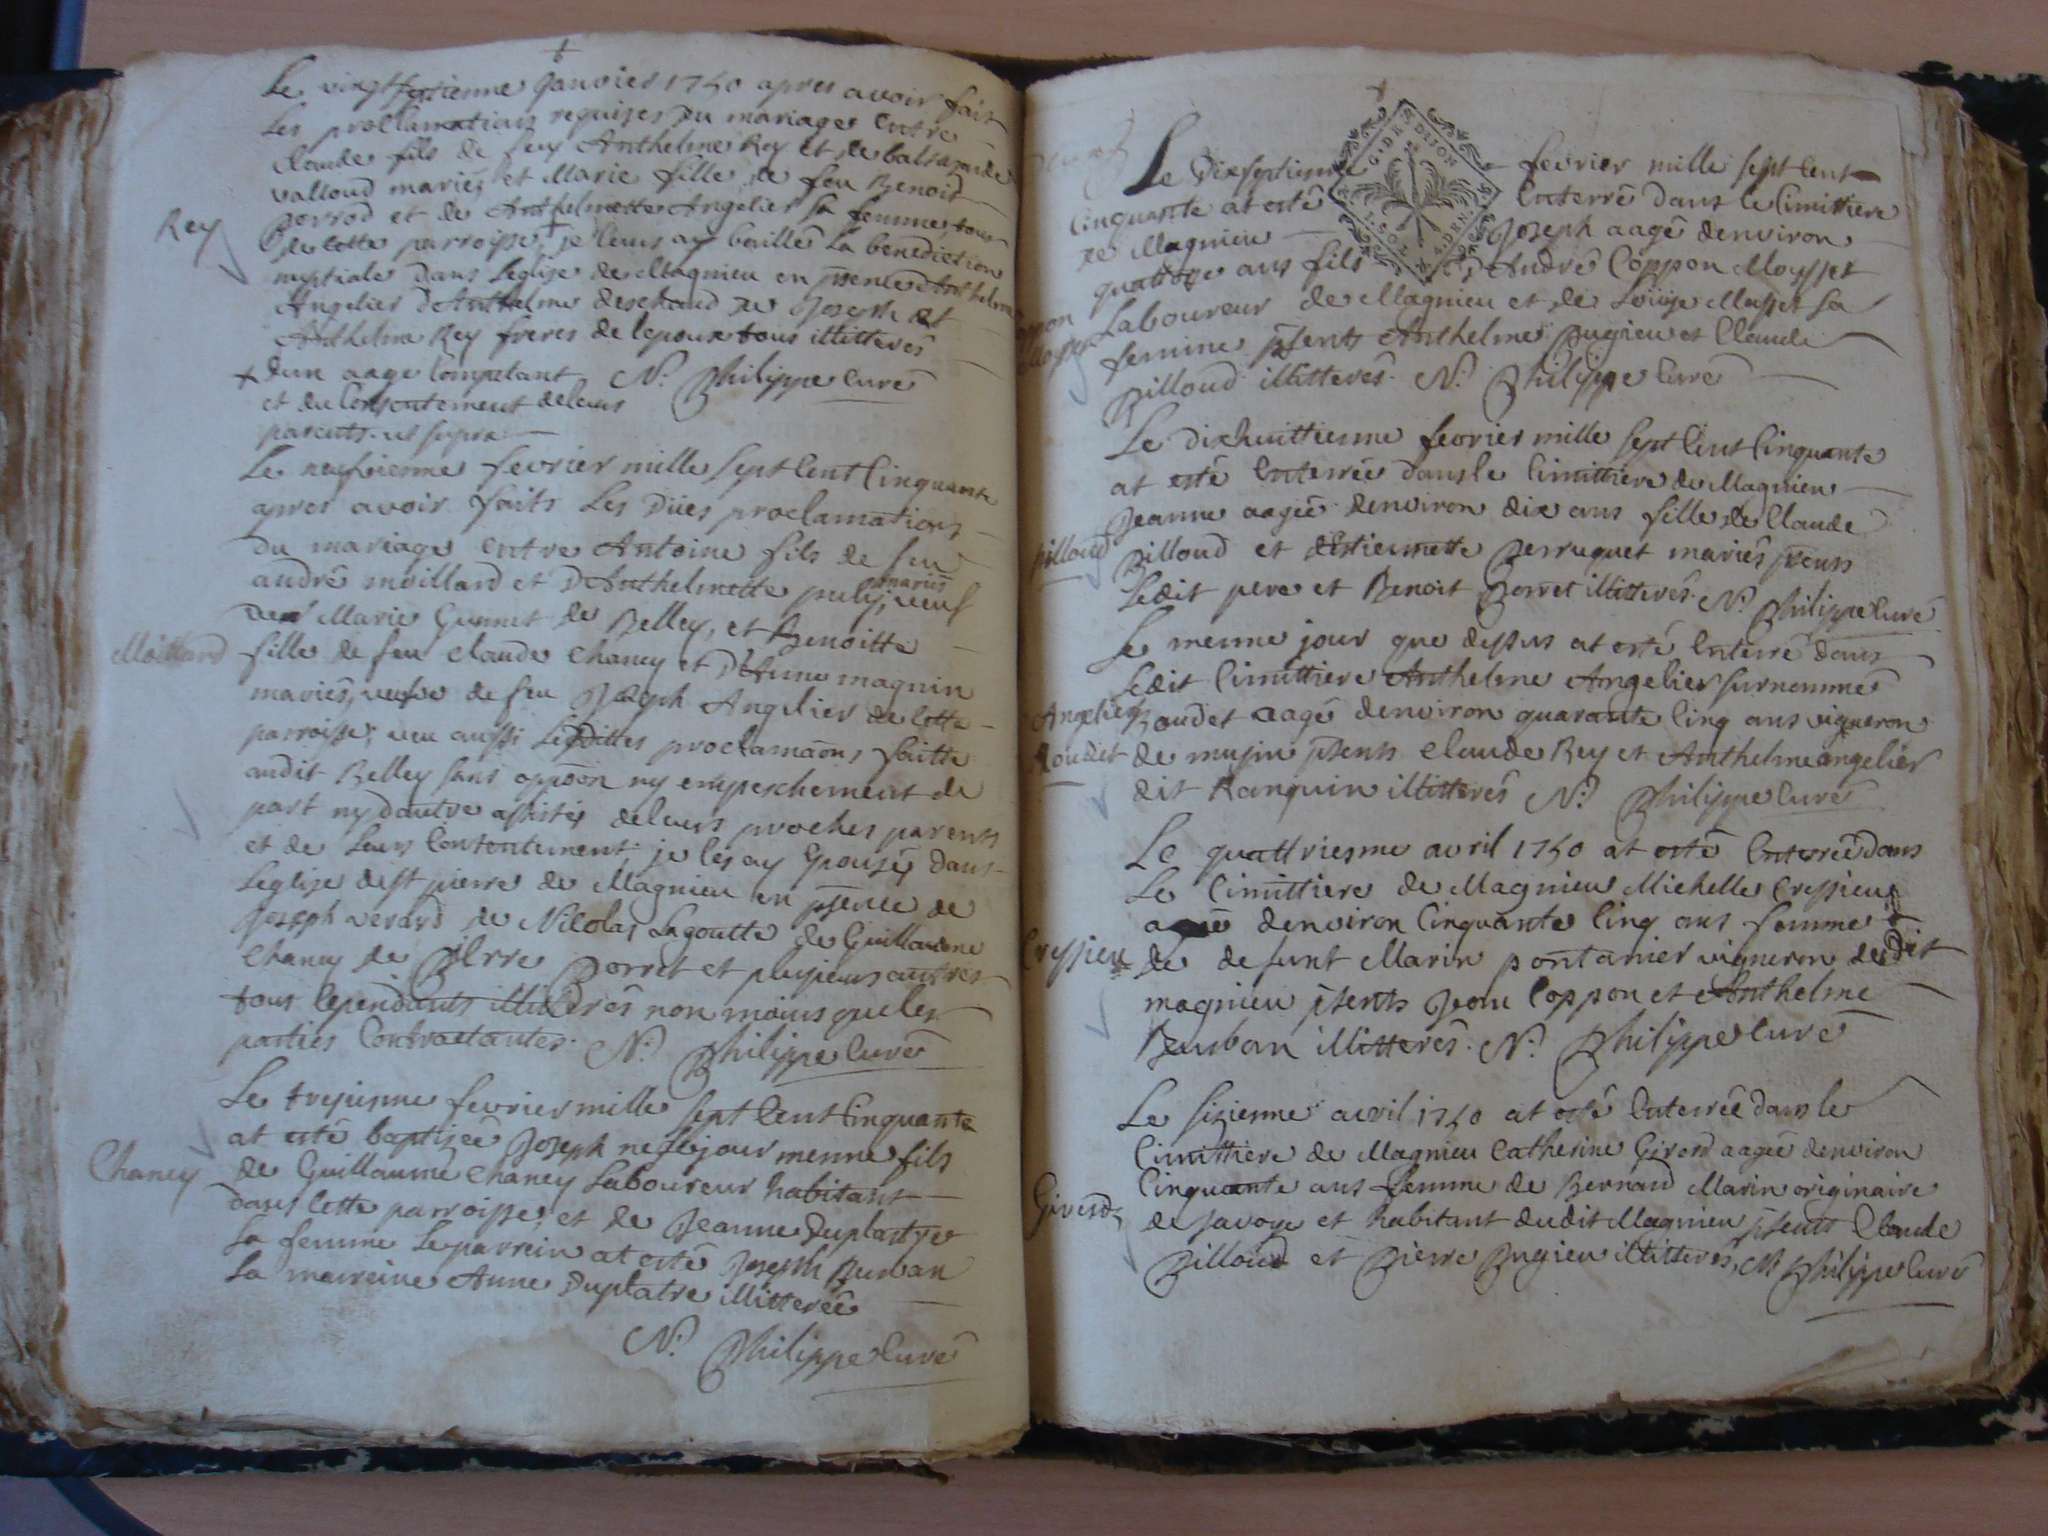 Le vingt septienne Janvier 1750 apres avoir fait
Les proclamations requises du mariage Entre
Claude fils de feu Anthelme Rey et de balsazarde
valloud mariés et Marie fille de feu Benoit
porrod et de Anthelmette Angelier sa femme tous
Rey
de cette parroisse, + je leurs ay baillé la benediction
nuptiale dans Leglise de Magnieu en pñence Anthelme
Angelier d'Anthelme deschaud de Joseph et
Anthelme Rey freres de lepoux tous illitterés
+ dun aage Competant N. Philippe Curé
et du Consentement de leurs
parents. ut supra
Le neufvienne fevrier mille sept Cent Cinquante
apres avoir faits Les Dües proclamations
du mariage entre Antoine fils de feu
andré moillard et D'Anthelmette pulij, mariés veuf
de Marie Guinet de Belley, et Benoitte
Moillard
fille de feu Claude Chaney et D'Anne magnin
mariés, veufve de feu Joseph Angelier de Cette
parroisse, veu aussi Lesdittes proclamaõns faitte
audit Belley sans oppõon ny empeschement de
part ny dautre assistés de leurs proches parents
et de Leurs Consentement je les ay Epousés dans
Leglise de st pierre de Magnieu en pñence de
Joseph verard de Nicolas Lagoutte de Guillaume
Chaney de pierre Porret et plusieurs autres
tous Cependants illitterés non moins que les
parties Contractantes. N. Philippe Curé
Le trezienne fevrier mille sept Cent Cinquante
at esté baptizée Joseph né ce jour menne fils
Chaney
de Guillaume Chaney Laboureur habitant
dans Cette parroisse, et de Jeanne Duplastre
sa femme Le parrein at esté Joseph Burban
La marreine Anne Duplatre illitterée
N. Philippe Curé
Le Dixseptienne fevrier mille sept Cent
G. DE DIJON
Cinquante at esté Enterré dans le Cimittiere
de Magnieu Joseph aagé denviron
quattorze ans fils d'André Coppon Moysset
Laboureur de Magnieu et de Loüise Masset sa
femme pñents Anthelme Pugieu et Claude
Billoud illitterés. N. Philippe Curé
Le dixhuittienne fevrier mille sept Cent Cinquante
at esté Enterrée dans le Cimittiere de Magnieu
Jeanne aagée denviron dix ans fille de Claude
Billoud
Billoud et d'Estiennette Perruquet mariés pñents
Ledit pere et Benoit Porret illitterés. N. Philippe Curé
Le menne jour que dessus at esté Enterré dans
Ledit Cimittiere Anthelme Angelier surnommé
Angelier
Roudet aagé denviron quarante Cinq ans vigneron
Roudet
de musin pñents Claude Rey et Anthelme angelier
dit Ranquin illitterés N. Philippe Curé
Le quattriesme avril 1750 at esté Enterrée dans
Le Cimittiere de Magnieu Michelle Cressieu
agée denviron Cinquante Cinq ans femme
Cressieu
de defunt Marin pontanier vigneron dudit
magnieu pñents Jean Coppon et Anthelme
Burban illitterés. N. Philippe Curé
Le sizienne avril 1750 at esté Enterrée dans le
Cimittiere de Magnieu Catherine Girerd aagée denviron
Cinquante ans femme de Bernard Marin originaire
Girerd
de savoye et habitant dudit Magnieu pñents Claude
Billoud et Pierre Pugieu illitterés, N. Philippe Curé